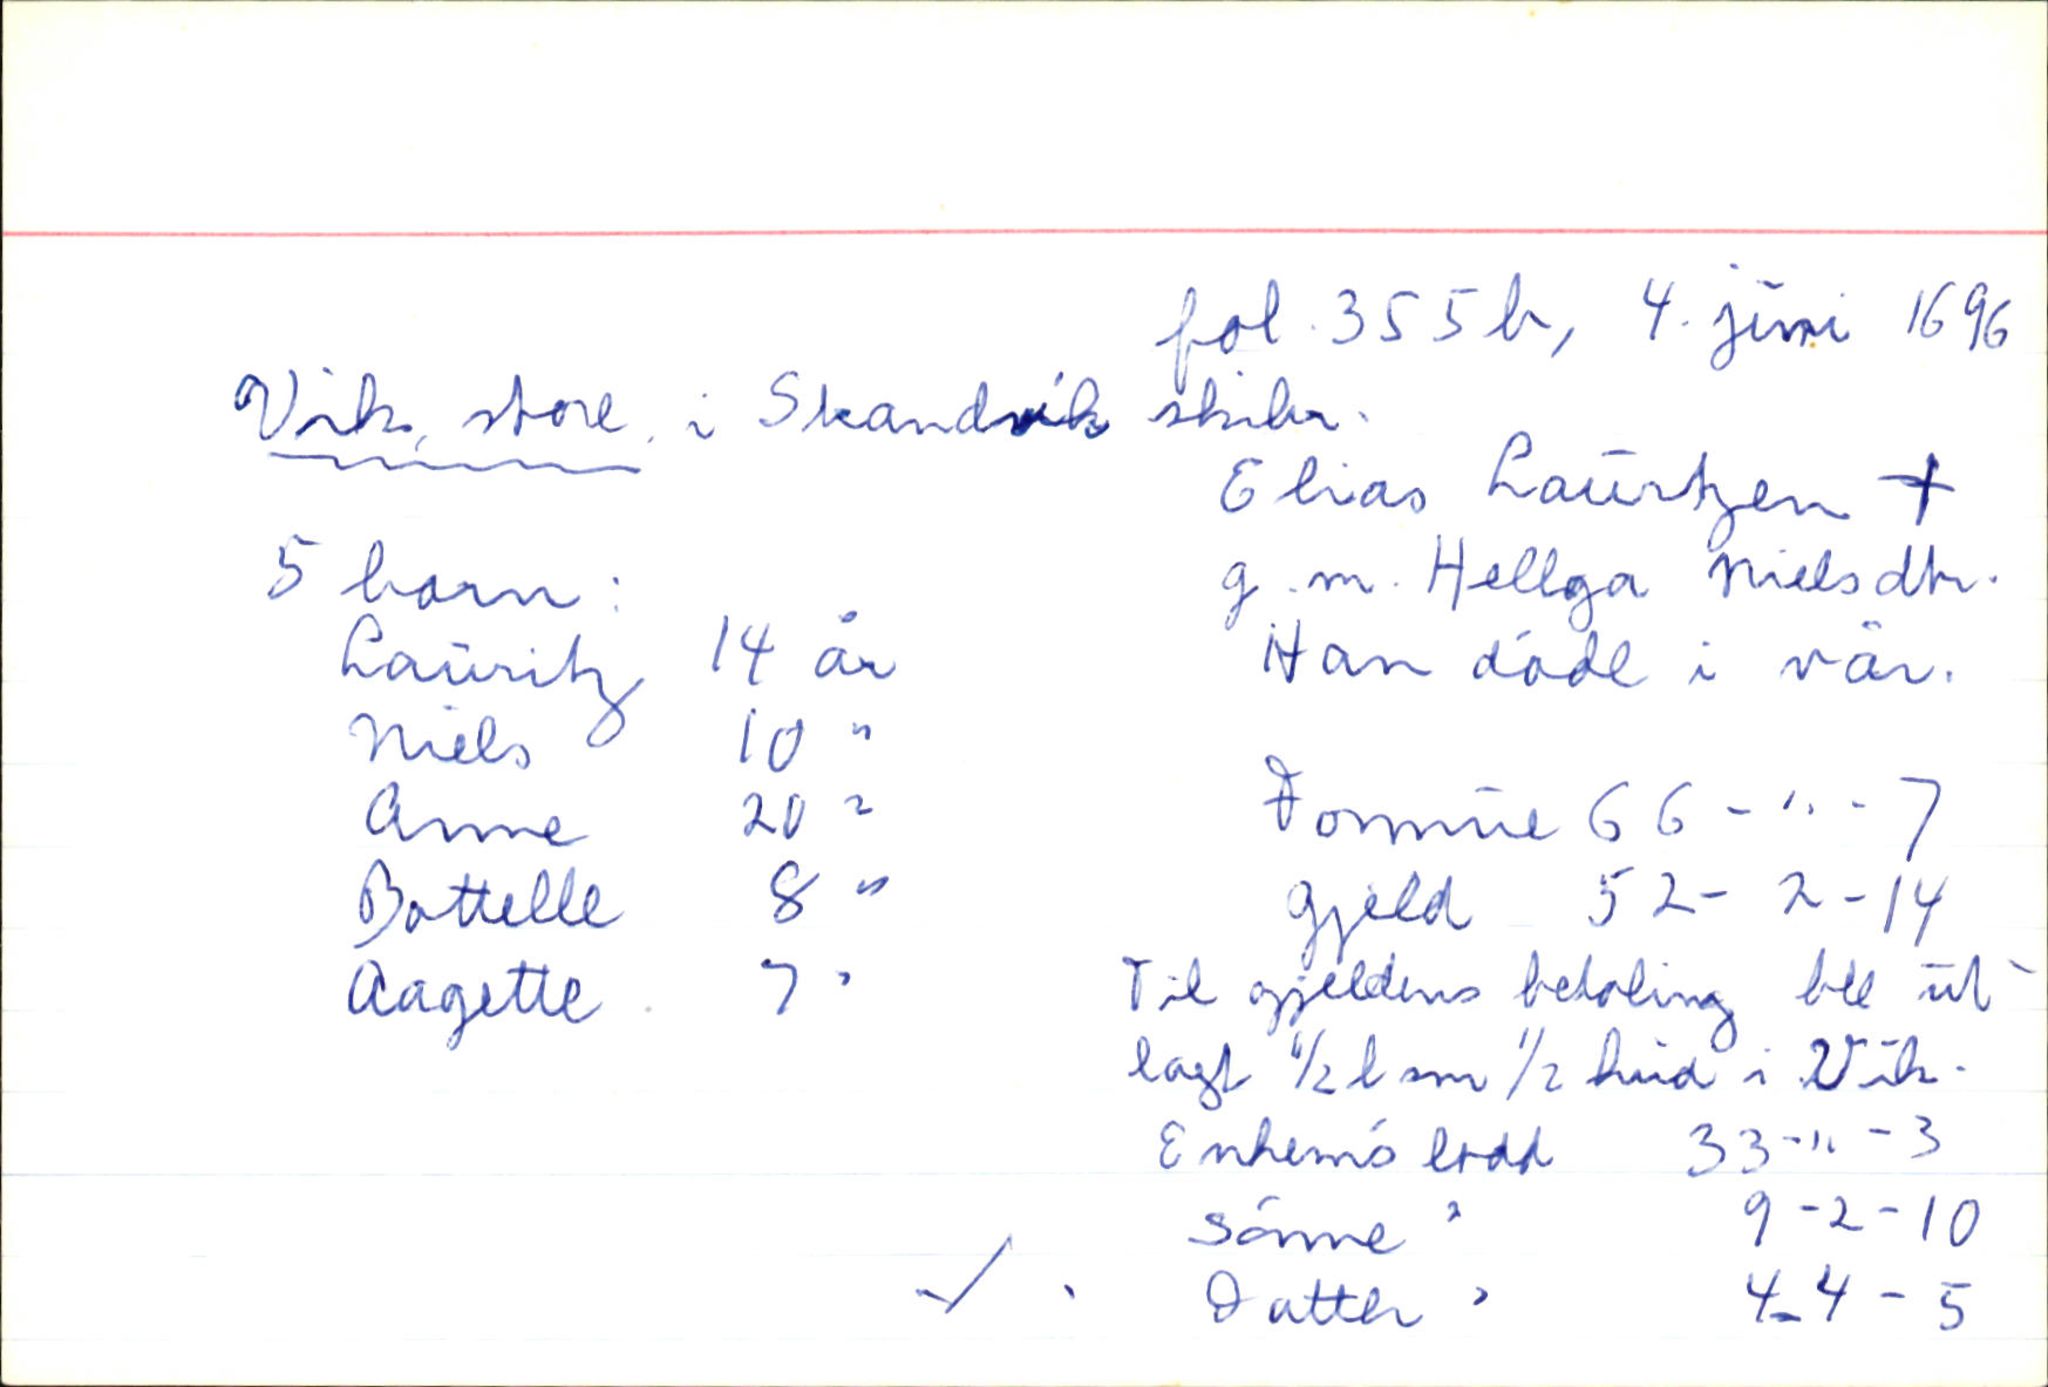 fol. 355b, 4. juni 1696
Vik, store, i Skandvik skibr.
Elias Lauritzen +
g.m. Hellga Nielsdtr.
Han døde i vår.
5 born:
Lauritz 14 år
Niels 10 "
Anne 20 "
Bottelle 8 "
Aagette 7 "
Formue 66 - " - 7
gjeld 52 - 2 - 14
Til gjeldens betaling ble ut-
lagt 1/2 l sm 1/2 hud i Vik.
Enkens lodd 33 - " - 3
Sønne " 9 - 2 - 10
Datter " 4 - 4 - 5